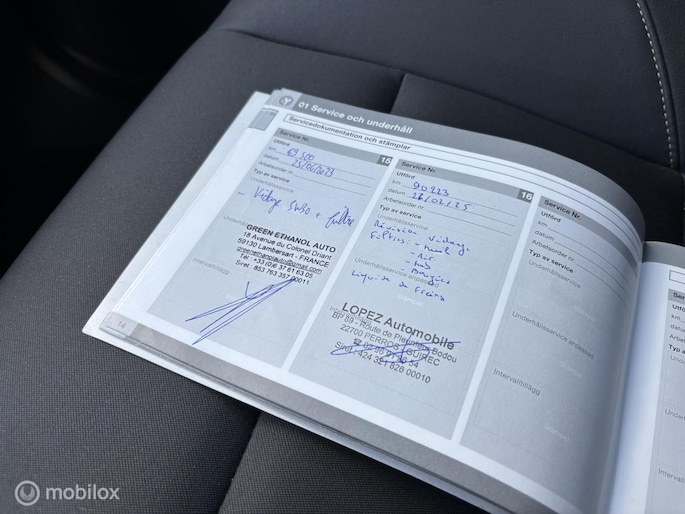 01 Service och underhåll
Servicedokumentation och stämplar
Service Nr.
15
Utförd
km 69 500
datum 25/06/2023
Arbetsorder nr
Typ av service
Underhållsservice
- Vidange 5W30 + filtre
GREEN ETHANOL AUTO
18 Avenue du Colonel Driant
59130 Lambersart - FRANCE
greenethanolauto@gmail.com
Tel : +33 (0)6 37 61 63 05
Siret : 853 763 357 00011
Intervalltillägg
14
Service Nr.
16
Utförd
km 90 223
datum
Arbetsorder nr
Typ av service
Underhållsservice
Révision Vidange
Filtres: - huile
- Air
- hab
Bougies
Underhållsservice anpassad
Liquide de Freins
Stämpel
LOPEZ Automobile
BP 89 - Route de Pleumeur Bodou
22700 PERROS GUIREC
Siret : 424 321 828 00010
Service Nr.
Utförd
km
datum
Arbetsorder nr
Typ av service
Underhållsservice
Underhållsservice anpassad
Intervalltillägg
Stämpel
mobilox